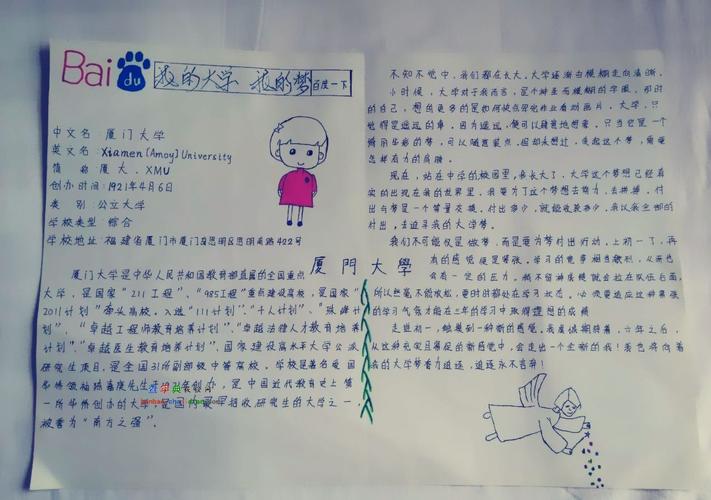 Bai du 我的大学 我的梦 百度一下
中文名:厦门大学
英文名:Xiamen (Amoy) University
简 称:厦大、XMU
创办时间:1921年4月6日
类 别:公立大学
学校类型:综合
学校地址:福建省厦门市思明区思明南路402号
厦門大學
厦门大学是中华人民共和国教育部直属的全国重点
大学,是国家“211工程”、“985工程”重点建设高校,是国家“
2011计划”牵头高校。入选“111计划”、“千人计划”、“珠峰计
划”、“卓越工程师教育培养计划”、“卓越法律人才教育培养
计划”、“卓越医生教育培养计划”、国家建设高水平大学公派
研究生项目,是全国31所副部级中管高校。学校是著名爱国
华侨领袖陈嘉庚先生 创办,是中国近代教育史上第
一所华侨创办的大学,是国内最早招收研究生的大学之一,
被誉为“南方之强”。
不知不觉中,我们都在长大。大学逐渐由模糊走向清晰。
小时候,大学对于我而言,是个神圣而模糊的字眼。那时
的自己,想的更多的是如何快点写完作业看动画片。大学,只
觉得是遥远的事。因为遥远,便可以随意地想象。只当它是一个
绚丽华彩的梦,可以随意装点。但却未想过,承起这个梦,需要
怎样有力的肩膀。
现在,站在中学的校园里,我长大了,大学这个梦想已经真
实的出现在我的世界里。我要为了这个梦想去努力、去拼搏。付
出与梦是一个等量交换。付出多少,就能收获多少。我以我全部的
付出,去追寻我的大学梦。
我们不可能仅是做梦,而是要为梦付出行动。上初一了,再
有的感觉便是紧张。学习的竞争相当激烈,从而也
会有一定的压力。稍不留神 就会拉在队伍后面。
所以丝毫不能松懈,要时时刻处在学习状态。
的学习气氛才能在三年的学习中取得理想的成绩
走进初一,触摸到一种新的感觉。我真诚期待着,六年之后,
从这种充实且幸福的新感觉中,会走出一个全新的我!我也将向着
我的大学梦奋力追逐,追逐永不言弃!